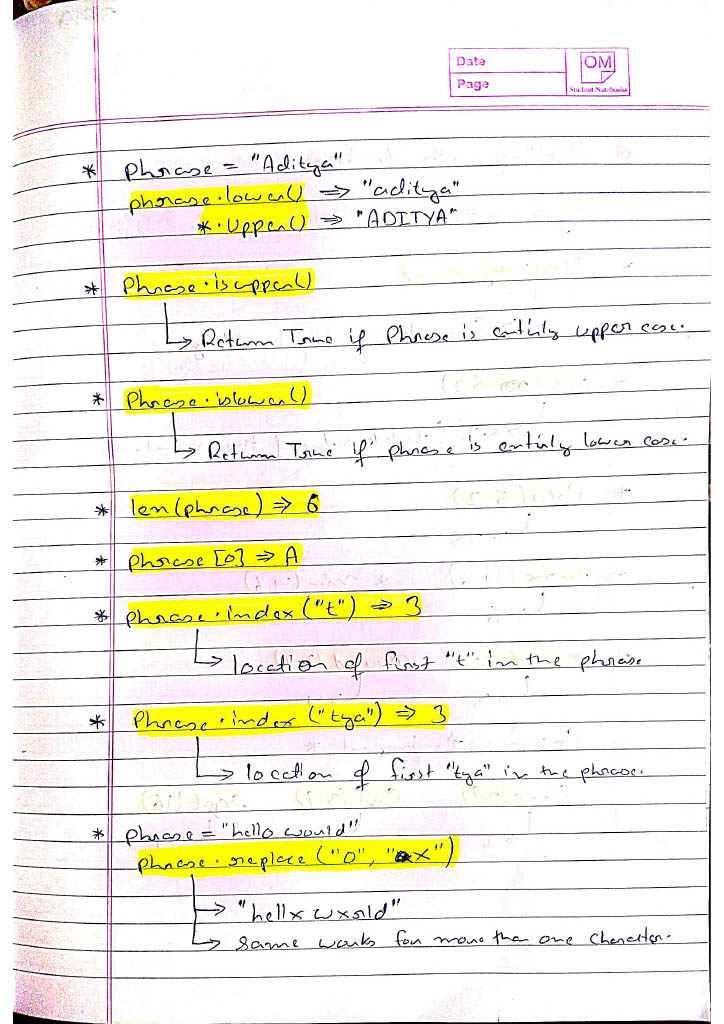 Date
OM
Page
Student Notebooks
* phrase = "Aditya"
phrase.lower() ⇒ "aditya"
*.Upper() ⇒ "ADITYA"
* Phrase.isupper()
↳ Return True if Phrase is entirly upper case.
* Phrase.islower()
↳ Return True if phrase is entirly lower case.
* len(phrase) ⇒ 6
* phrase[0] ⇒ A
* phrase.index("t") ⇒ 3
↳ location of first "t" in the phrase
* Phrase.index("tya") ⇒ 3
↳ location of first "tya" in the phrase.
* phrase = "hello would"
phrase.replace("o", "x")
→ "hellx wxrld"
↳ same works for more than one character.